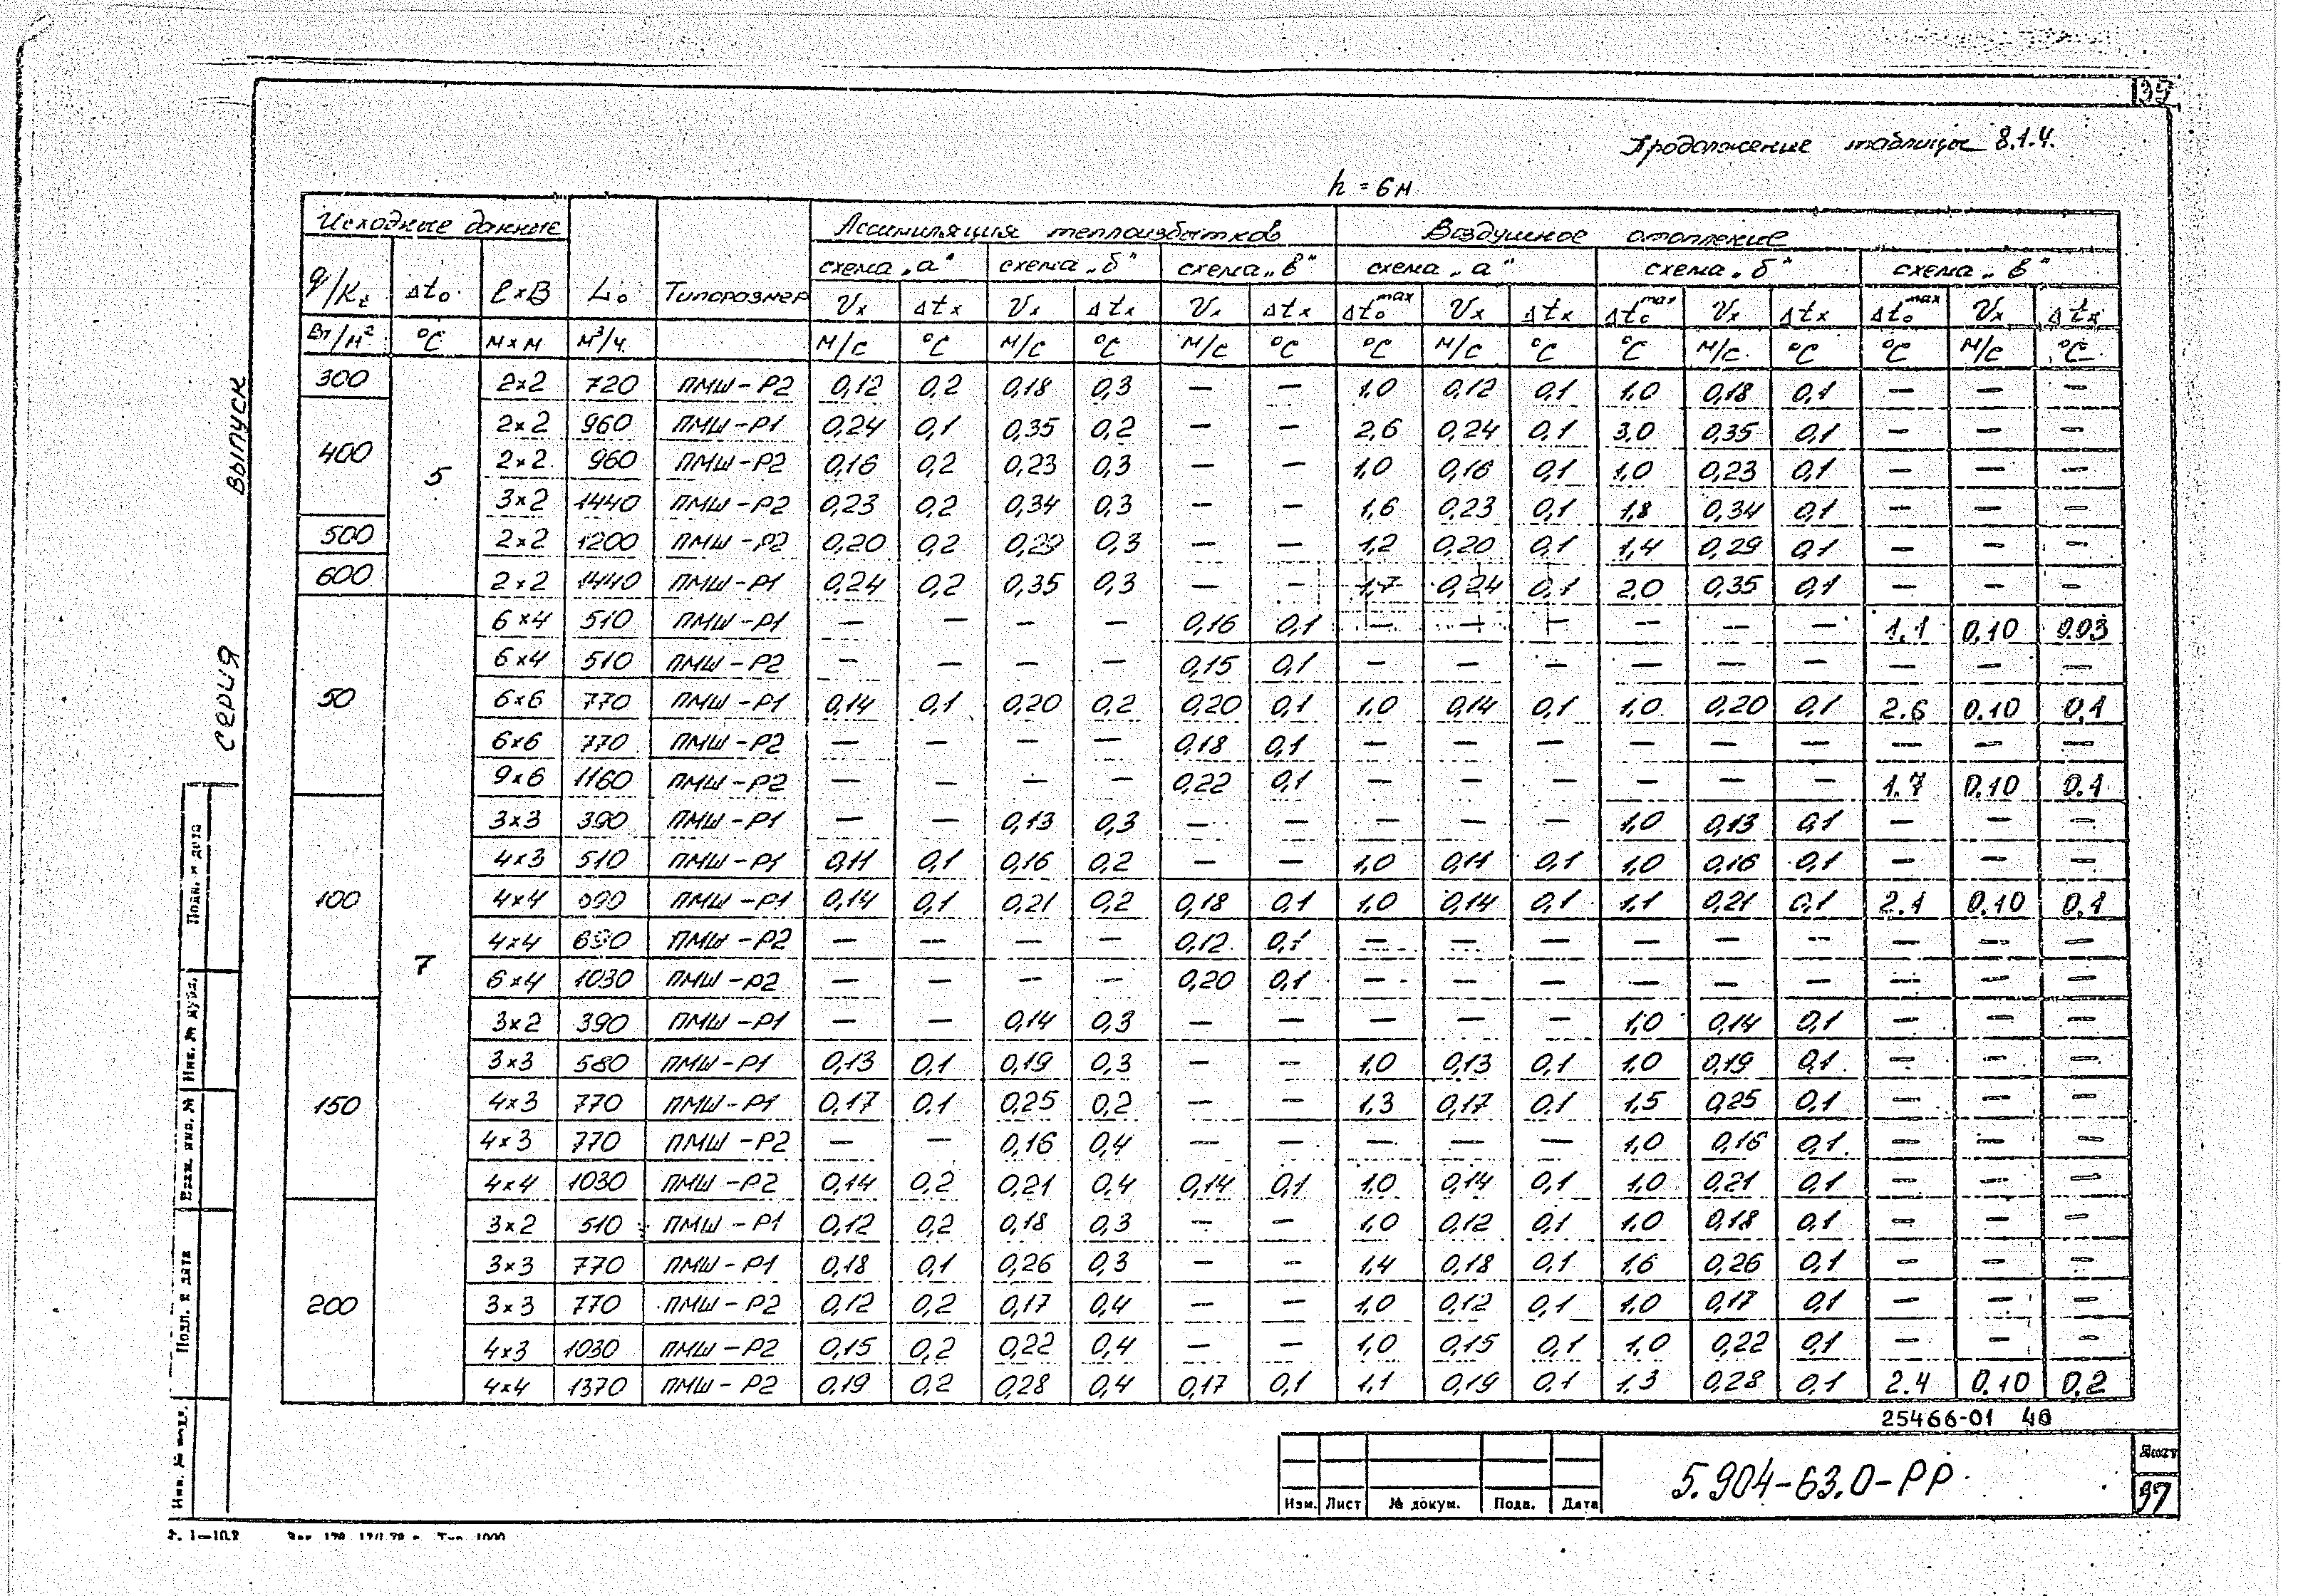 Продолжение таблицы 8.1.4.
h = 6 м
Исходные данные Lо Типоразмер Ассимиляция теплоизбытков Воздушное отопление
схема „а" схема „б" схема „в" схема „а" схема „б" схема „в"
q/Kt Δtо ℓ×B Vx Δtx Vx Δtx Vx Δtx Δtо max Vx Δtx Δtо max Vx Δtx Δtо max Vx Δtx
Вт/м² °С м×м м³/ч м/с °С м/с °С м/с °С °С м/с °С °С м/с °С °С м/с °С
300 5 2×2 720 ПМШ-Р2 0,12 0,2 0,18 0,3 — — 1,0 0,12 0,1 1,0 0,18 0,1 — — —
400 2×2 960 ПМШ-Р1 0,24 0,1 0,35 0,2 — — 2,6 0,24 0,1 3,0 0,35 0,1 — — —
2×2 960 ПМШ-Р2 0,16 0,2 0,23 0,3 — — 1,0 0,16 0,1 1,0 0,23 0,1 — — —
3×2 1440 ПМШ-Р2 0,23 0,2 0,34 0,3 — — 1,6 0,23 0,1 1,8 0,34 0,1 — — —
500 2×2 1200 ПМШ-Р2 0,20 0,2 0,29 0,3 — — 1,2 0,20 0,1 1,4 0,29 0,1 — — —
600 2×2 1440 ПМШ-Р1 0,24 0,2 0,35 0,3 — — 1,7 0,24 0,1 2,0 0,35 0,1 — — —
50 7 6×4 510 ПМШ-Р1 — — — — 0,16 0,1 — — — — — — 1.1 0.10 0.03
6×4 510 ПМШ-Р2 — — — — 0,15 0,1 — — — — — — — — —
6×6 770 ПМШ-Р1 0,14 0,1 0,20 0,2 0,20 0,1 1,0 0,14 0,1 1,0 0,20 0,1 2.6 0.10 0.1
6×6 770 ПМШ-Р2 — — — — 0,18 0,1 — — — — — — — — —
9×6 1160 ПМШ-Р2 — — — — 0,22 0,1 — — — — — — 1.7 0.10 0.1
100 3×3 390 ПМШ-Р1 — — 0,13 0,3 — — — — — 1,0 0,13 0,1 — — —
4×3 510 ПМШ-Р1 0,11 0,1 0,16 0,2 — — 1,0 0,11 0,1 1,0 0,16 0,1 — — —
4×4 690 ПМШ-Р1 0,14 0,1 0,21 0,2 0,18 0,1 1,0 0,14 0,1 1,1 0,21 0,1 2.1 0.10 0.1
4×4 690 ПМШ-Р2 — — — — 0,12 0,1 — — — — — — — — —
6×4 1030 ПМШ-Р2 — — — — 0,20 0,1 — — — — — — — — —
150 3×2 390 ПМШ-Р1 — — 0,14 0,3 — — — — — 1,0 0,14 0,1 — — —
3×3 580 ПМШ-Р1 0,13 0,1 0,19 0,3 — — 1,0 0,13 0,1 1,0 0,19 0,1 — — —
4×3 770 ПМШ-Р1 0,17 0,1 0,25 0,2 — — 1,3 0,17 0,1 1,5 0,25 0,1 — — —
4×3 770 ПМШ-Р2 — — 0,16 0,4 — — — — — 1,0 0,16 0,1 — — —
4×4 1030 ПМШ-Р2 0,14 0,2 0,21 0,4 0,14 0,1 1,0 0,14 0,1 1,0 0,21 0,1 — — —
200 3×2 510 ПМШ-Р1 0,12 0,2 0,18 0,3 — — 1,0 0,12 0,1 1,0 0,18 0,1 — — —
3×3 770 ПМШ-Р1 0,18 0,1 0,26 0,3 — — 1,4 0,18 0,1 1,6 0,26 0,1 — — —
3×3 770 ПМШ-Р2 0,12 0,2 0,17 0,4 — — 1,0 0,12 0,1 1,0 0,17 0,1 — — —
4×3 1030 ПМШ-Р2 0,15 0,2 0,22 0,4 — — 1,0 0,15 0,1 1,0 0,22 0,1 — — —
4×4 1370 ПМШ-Р2 0,19 0,2 0,28 0,4 0,17 0,1 1,1 0,19 0,1 1,3 0,28 0,1 2.4 0.10 0.2
25466-01 40
5.904-63.0-РР
Лист
37
Изм. Лист № докум. Подп. Дата
серия выпуск
Подп. и дата
Инв. № дубл.
Взам. инв. №
Подп. и дата
Инв. № подл.